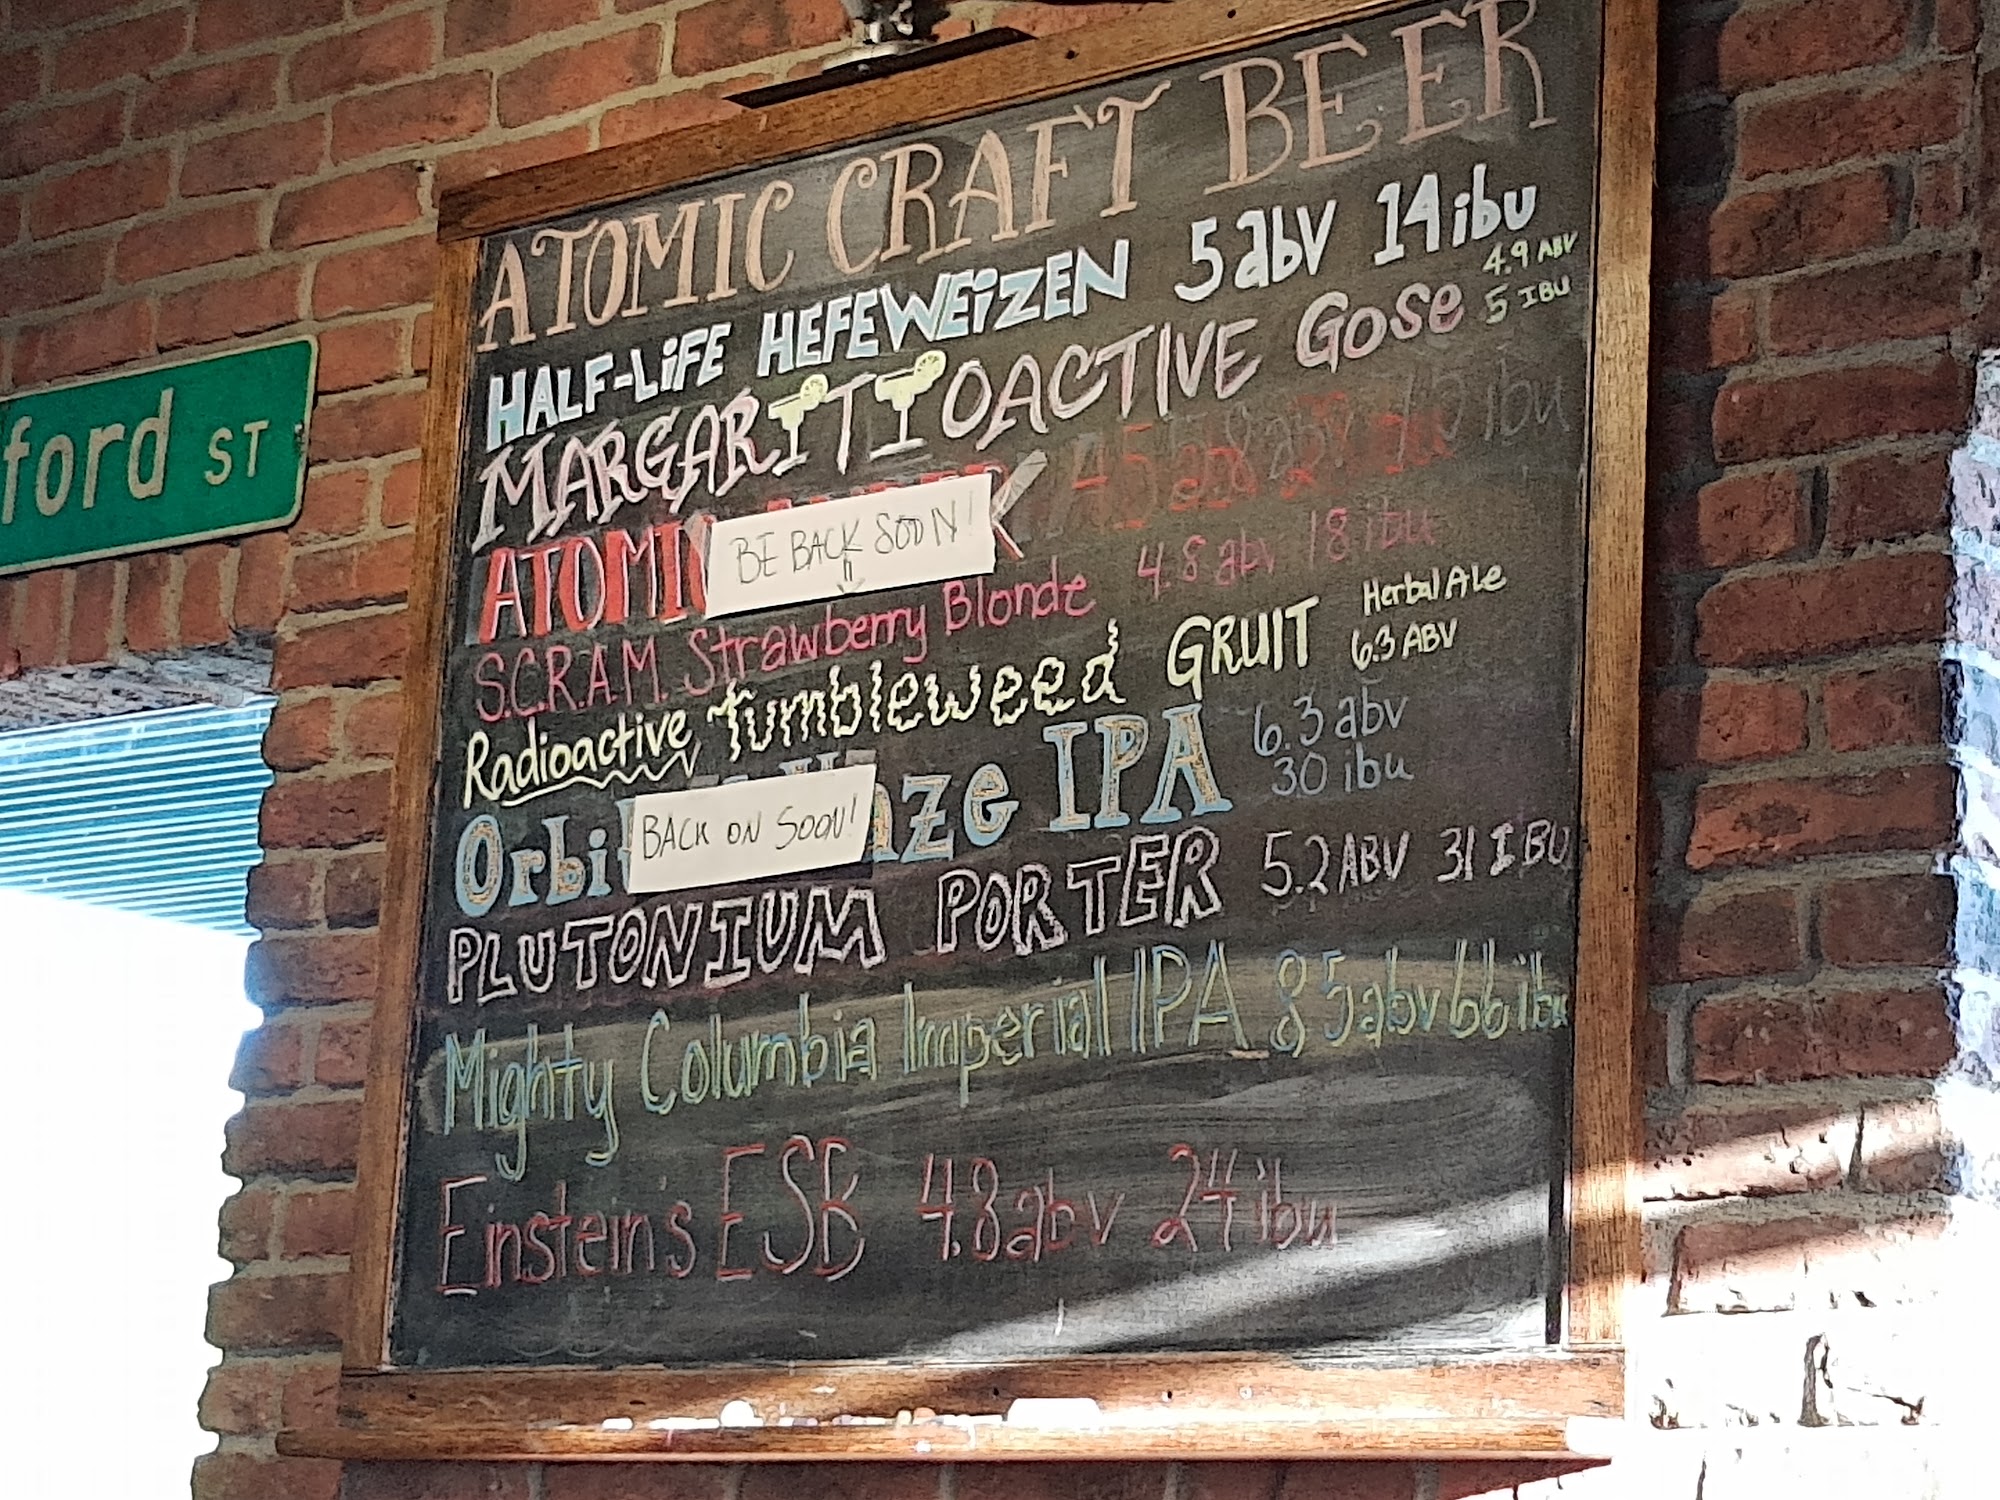 ATOMIC CRAFT BEER
HALF-LiFE HEFEWEiZEN 5abv 14ibu
MARGARITIOACTIVE Gose 4.9 ABV
5 IBU
ATOMIC
BE BACK SOON!
S.C.R.A.M. Strawberry Blonde 4.8 abv 18 ibu
Radioactive Tumbleweed GRUIT Herbal Ale
6.3 ABV
BACK ON SOON!
IPA 6.3 abv
30 ibu
PLUTONIUM PORTER 5.2 ABV 31 IBU
Mighty Columbia Imperial IPA 8.5abv 66ibu
Einstein's ESB 4.8abv 24ibu
ford ST